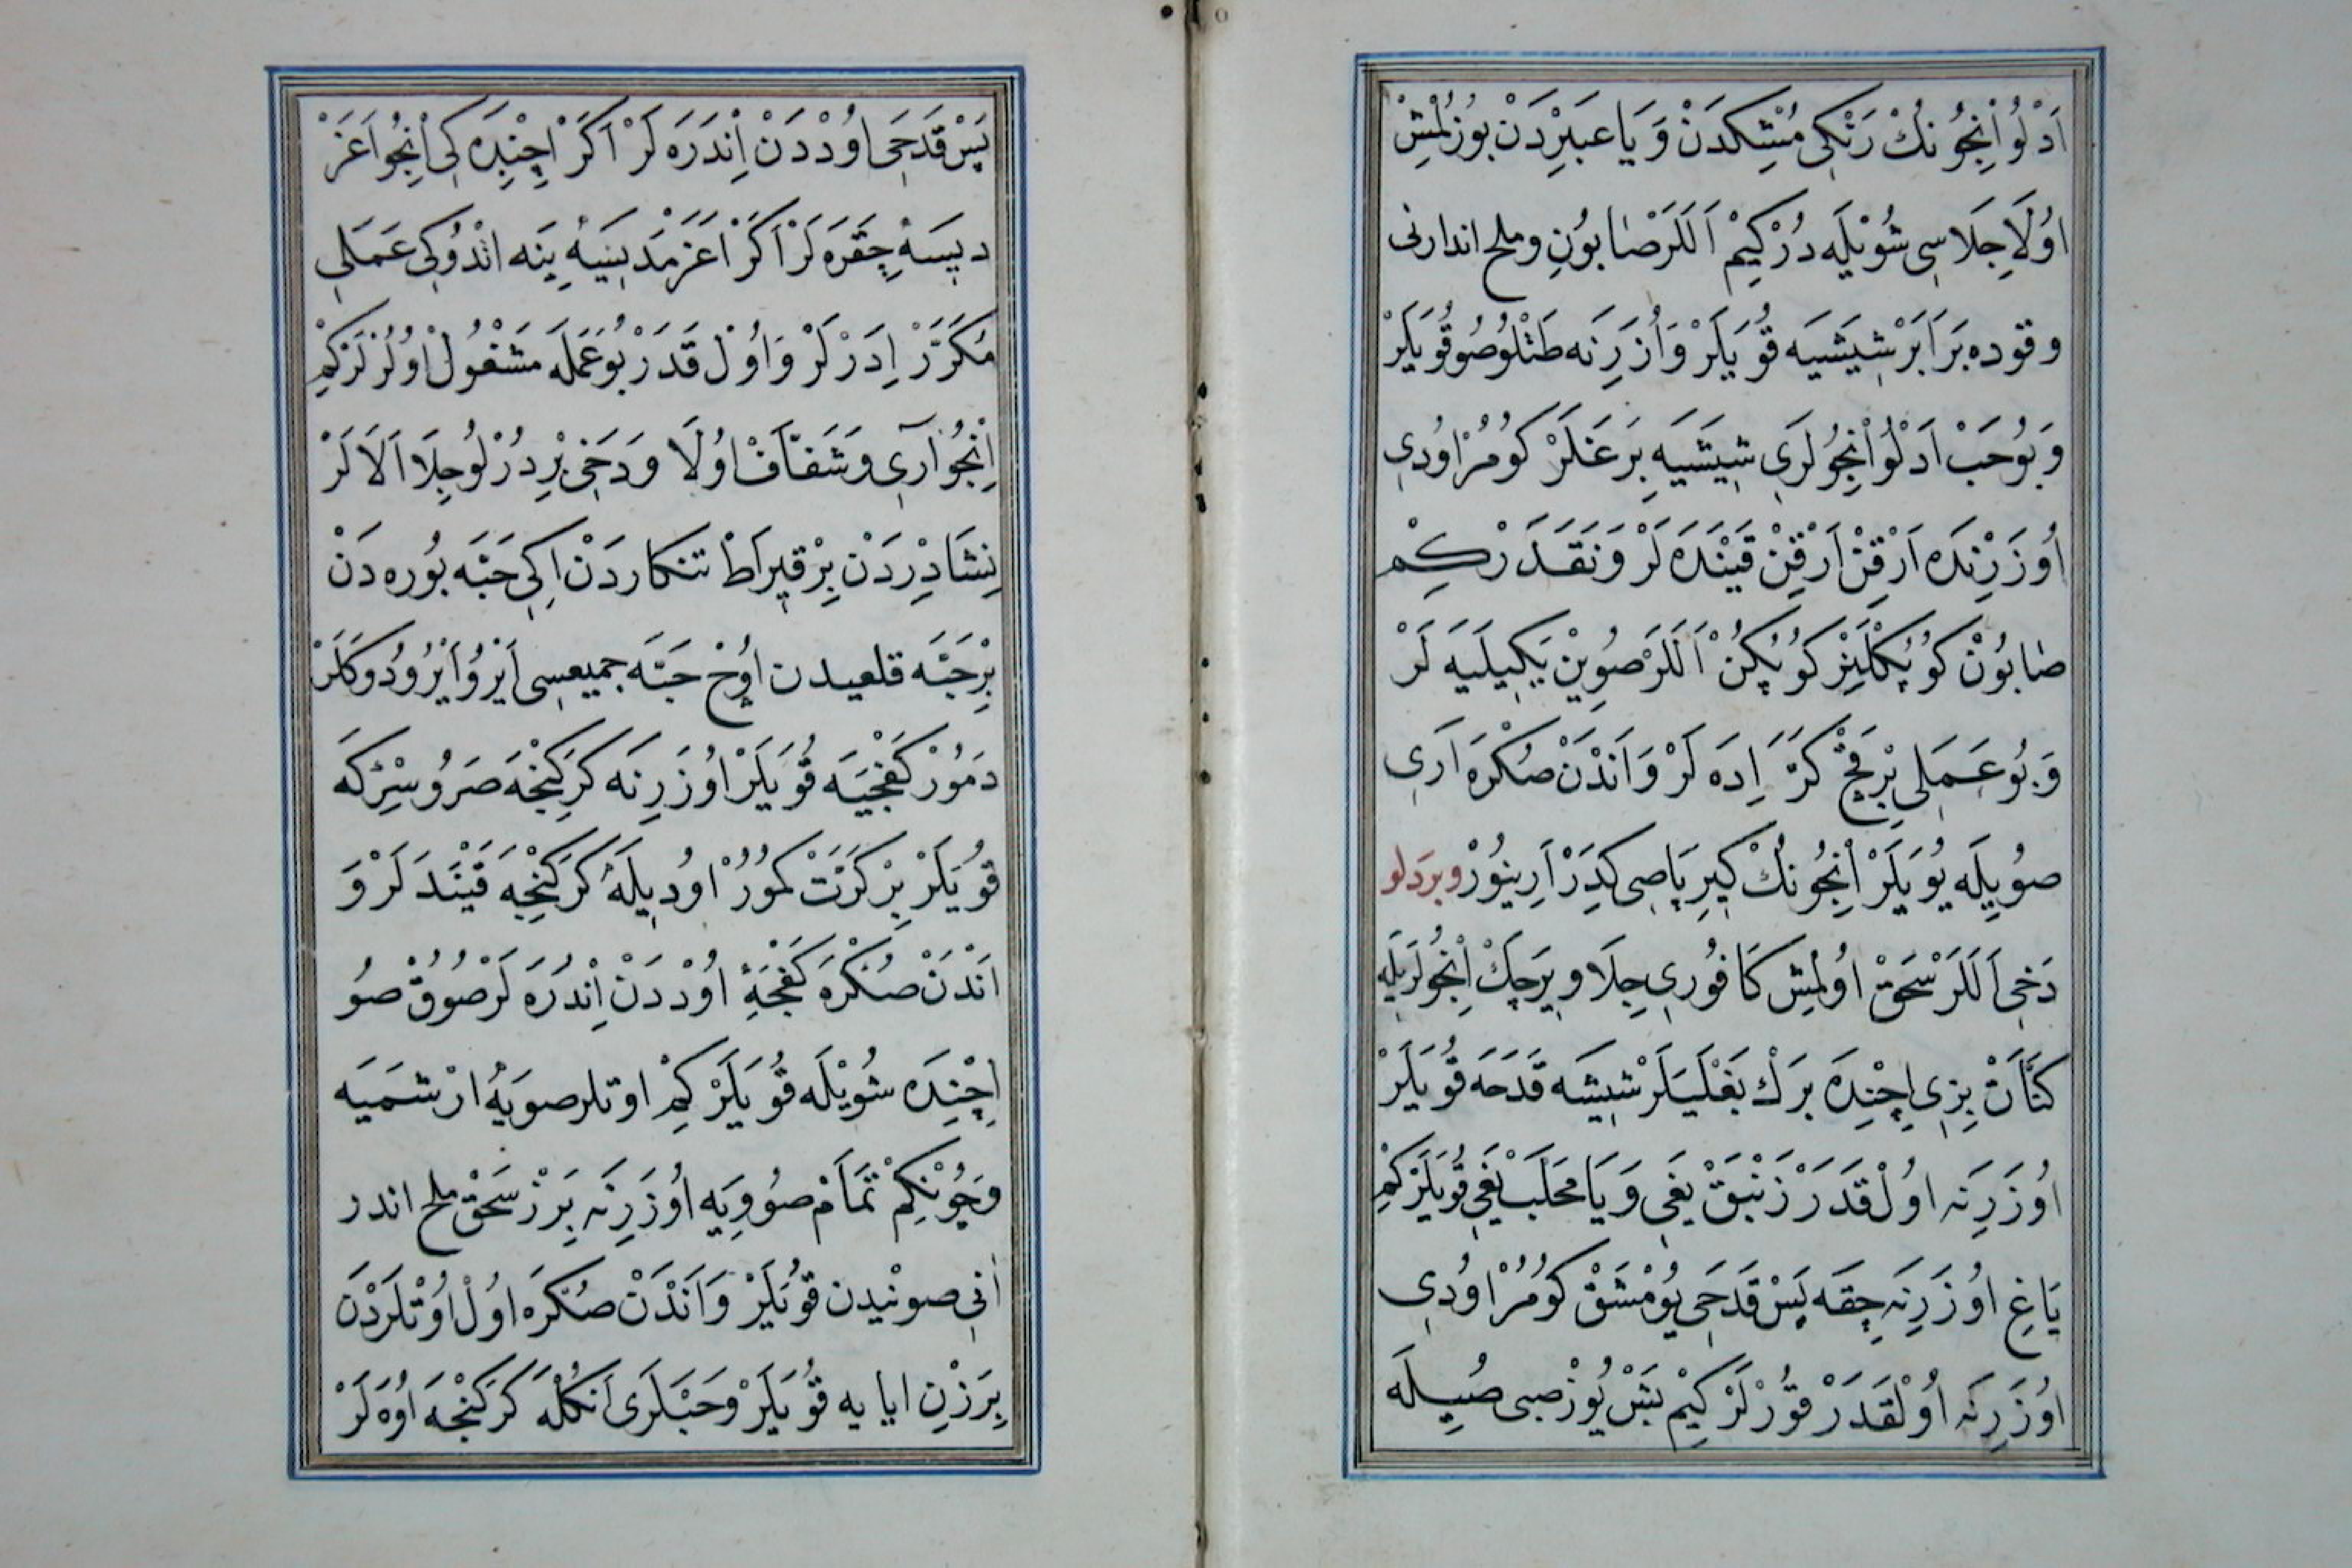 اَدْلُو اِنْجُونُكْ رَنْكِى مُشِكدَنْ وَيَا عبَيِرْدَنْ بوُزلُمْشِ
اوُلَا جِلَا سِى شُوْيْلَه دُرْ كِيِمْ اَلَلَرْ صَابوُنِ و ملح اندارنى
و قوده بَرَابَرْ شِيَشَيَه قُويَلَرْ وَ اُزَرِنَه طَتْلُو صُو قُويَلَرْ
وَ بُو حَبْ اَدْلُو اِنْجُولَرَىِ شِيَشَيَهِ بَرَغَلَرْ كُومُرْ اوُدِىِ
اُوزَرِنْدَه اَرْقِنْ اَرْقِنْ قَيْنَدَه لَرْ وَ نَقَدَرْ كِمْ
صَابوُنْ كُوپُكْلَنِرْ كُوپُكِنْ اَلَلَرْ صُوِيْنْ يَكِيلَيَه لَرْ
وَ بُو عَمَلِى بِرْ قَچْ كَرَّ اِدَه لَرْ وَ اَنْدَنْ صُكْرَه اَرِى
صوُيِلَه يُويَلَرْ اِنْجُونُكْ كِيرِ پَاصِى كدَرْ اَرِينوُرْ و بردَلو
دَخِى اَلَلَرْ سَحَقْ اوُلمِش كَافُورِى جِلَا و يِرَجِكْ اِنْجُولَرِيلَه
كتَّانْ بِزِى اِچِنْدَه بَرَكْ بَغْلَيَلَرْ شِيشَه قَدَحَه قُويَلَرْ
اوُزَرِنَه اوُلْ قَدَرْ زَنْبَقْ يغَىِ وَيَا مَحْلَبْ يَغىِ قُويَلَرْ كِمْ
يَاغِ اوُزَرِنَه چِقَه پَسْ قَدَحَىِ يوُمْشَقْ كُومُرْ اوُدِىِ
اوُزَرِنَه اُولْقَدَرْ قوُرْلَرْ كِيِمْ بَشْ يُوزْ صبى صُيِلَه
پَسْ قَدَحَىِ اوُدْدَنْ اِنْدَرَه لَرْ اَكَرْ اِچِنْدَه كِى اِنْجُو اَغَرْ
دِيسَه چِقَرَه لَرْ اَكَرْ اَغَرْمَدِيسَه يِنَه اتْدوُكِى عَمَلِى
مُكَرَّرْ اِدَرْلَرْ وَ اُولْ قَدَرْ بُو عَمَلَه مَشْغُولْ اوُلُرْلَرْ كِمْ
اِنْجُو آرِى وَ شَفَّافْ اوُلَا وَ دَخِى بِرْ دُرْلُو جِلَا اَلَالَرْ
نِشَادِرِدَنْ بِرْ قيرَاطْ تنكاردَنْ اِكِى حَبَّه بُورَه دَنْ
بِرْ حَبَّه قلعيدن اوُچْ حَبَّه جميعسِى اَيْرُو اَيْرُو دوكَلَرْ
دَمُورْ كَفْچَيَه قُويَلَرْ اوُزَرِنَه كَرَكِنْجَه صَرُو سِرْكَه
قُويَلَرْ بِرْ كَرَّتْ كمُورُ اوُدِيلَه كَرَكِنْجَه قَيْنَدَلَرْ وَ
اَنْدَنْ صُكْرَه كَفْچَهِ اوُدْدَنْ اِنْدُرَه لَرْ صوُوقْ صُو
اِچِنْدَه شوُيْلَه قُويَلَرْ كِمْ اوتلر صويَه ارْشمَيَه
وَ چُونْكِمْ تَمَامْ صُووِيَه اُوزَرِنَه بِرَزْ سَحَقْ ملح اندر
اَنىِ صونيدن قُويَلَرْ وَ اَنْدَنْ صُكْرَه اوُلْ اوُتْلَرْدَنْ
بِرَزْنِ ايا يه قُويَلَرْ وَ حَبْلَرَى اَنكُلَه كَرَكِنْجَه اوُه لَرْ